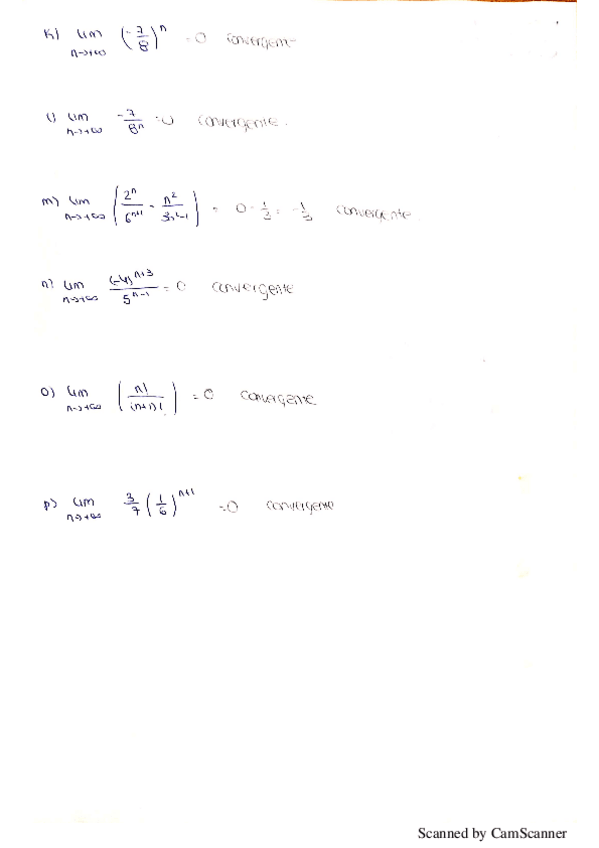 k) lim n→+∞ (-7/8)^n = 0 convergent
l) lim n→+∞ -7/8^n = 0 convergente.
m) lim n→+∞ (2^n/6^(n+1) - n^2/(3n^2-1)) = 0 - 1/3 = -1/3 convergente.
n) lim n→+∞ (-4)^(n+3)/5^(n-1) = 0 convergente
o) lim n→+∞ (n!/(n+1)!) = 0 convergente
p) lim n→+∞ 3/7 (1/6)^(n+1) = 0 convergente
Scanned by CamScanner